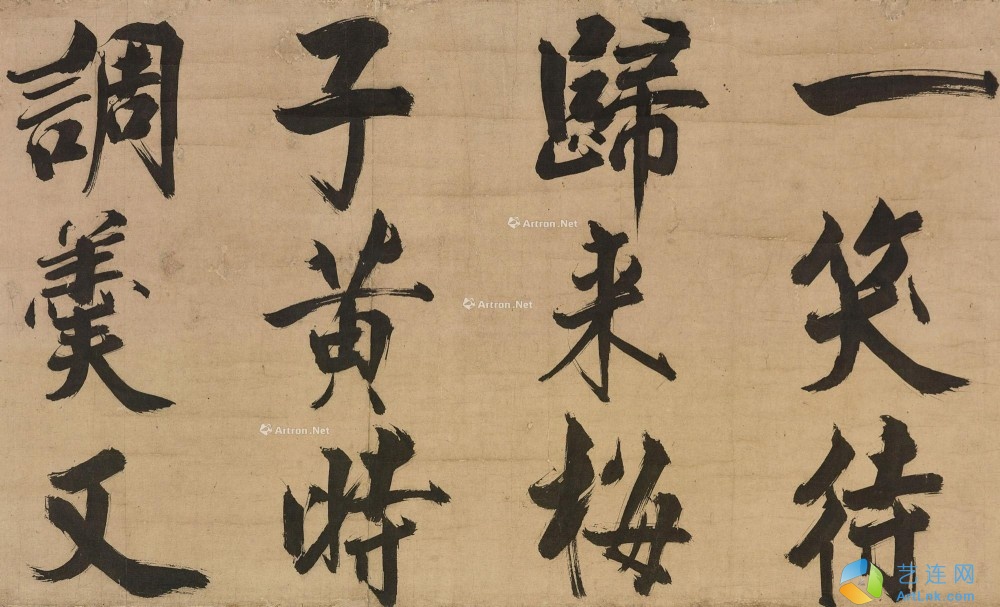 一笑待
歸来梅
子黄時
調羹又
Artron.Net
Artron.Net
Artron.Net
艺连网
ArtLnk.com